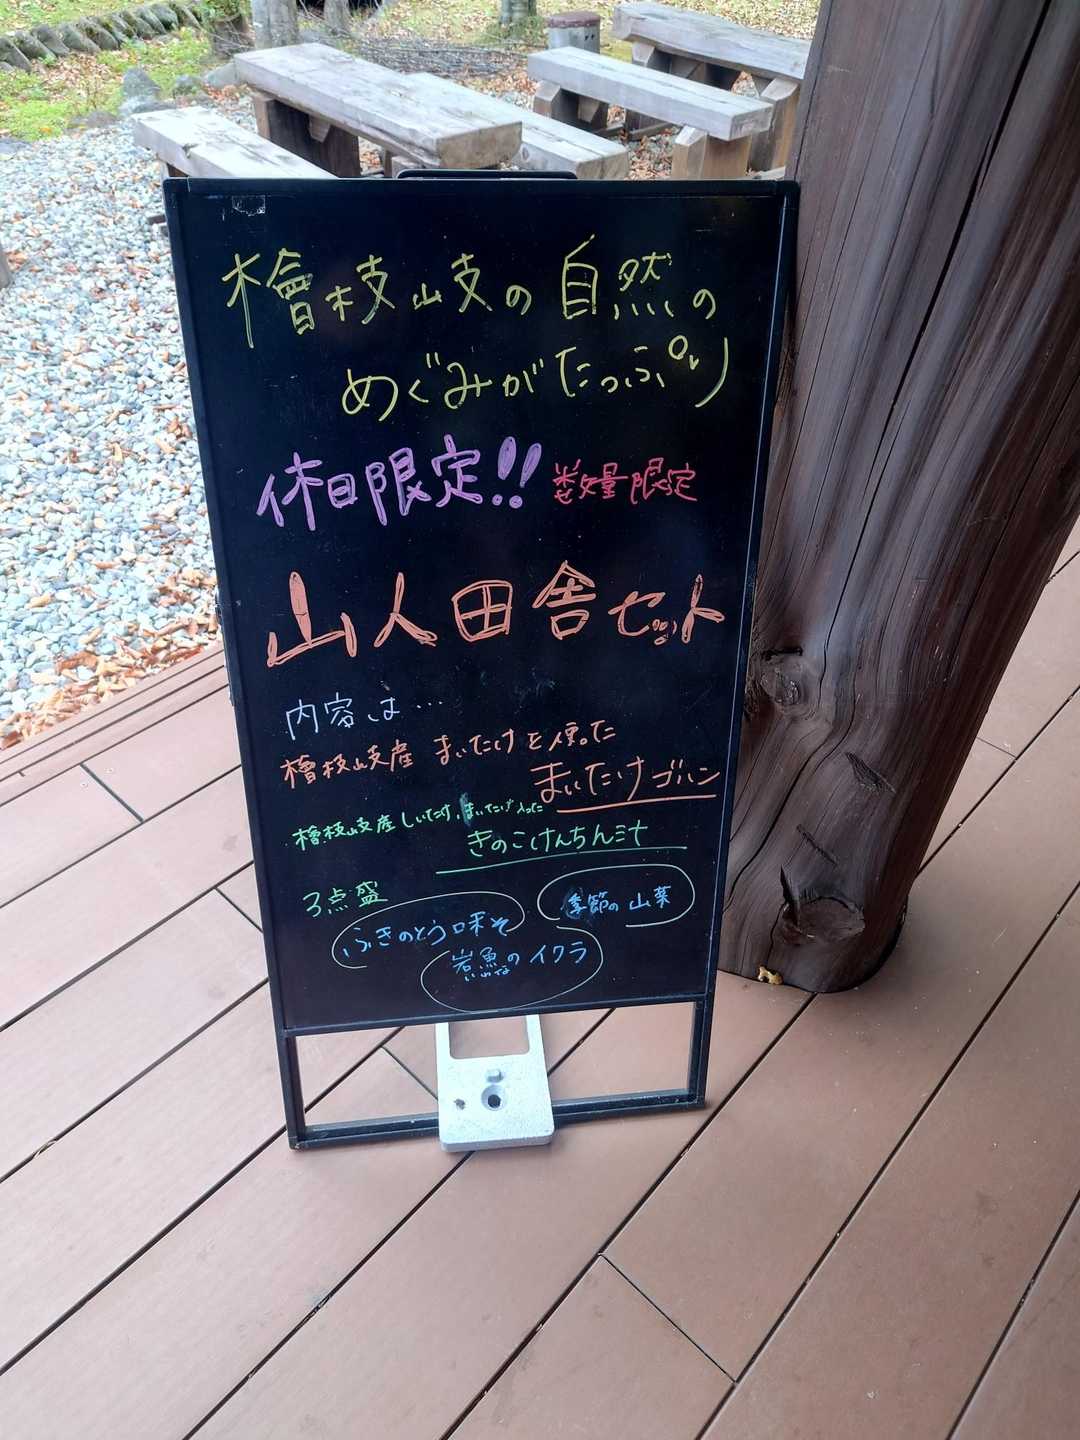 檜枝岐の自然の
めぐみがたっぷり
休日限定!! 数量限定
山人田舎セット
内容は…
檜枝岐産 まいたけを使った
まいたけゴハン
檜枝岐産しいたけ、まいたけ入った
きのこけんちん汁
3点盛
季節の山菜
ふきのとう味そ
岩魚のイクラ
いわな